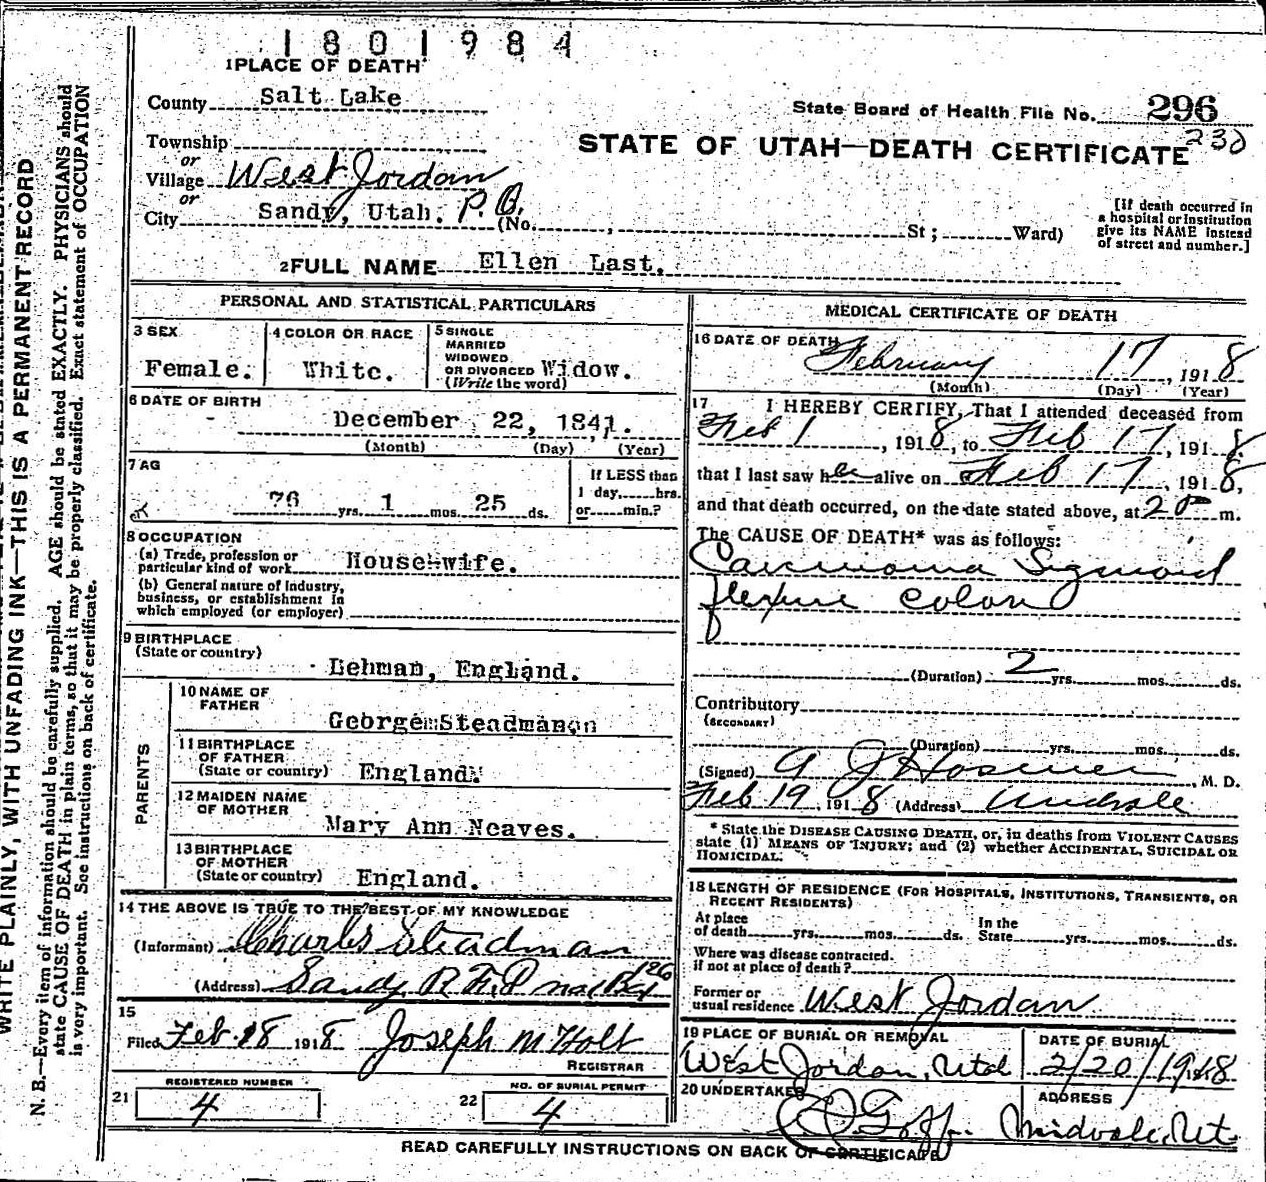 1801984
1 PLACE OF DEATH
County Salt Lake
State Board of Health File No. 296
230
Township
or
Village West Jordan
or
City Sandy, Utah. P.O. (No. , St; Ward)
STATE OF UTAH—DEATH CERTIFICATE
[If death occurred in
a hospital or institution
give its NAME instead
of street and number.]
2 FULL NAME Ellen Last.
PERSONAL AND STATISTICAL PARTICULARS
3 SEX
Female.
4 COLOR OR RACE
White.
5 SINGLE
MARRIED
WIDOWED
OR DIVORCED Widow.
(Write the word)
6 DATE OF BIRTH
December 22, 1841.
(Month) (Day) (Year)
7 AG
76 yrs. 1 mos. 25 ds.
If LESS than
1 day, hrs.
or min.?
8 OCCUPATION
(a) Trade, profession or
particular kind of work House-wife.
(b) General nature of industry,
business, or establishment in
which employed (or employer)
9 BIRTHPLACE
(State or country)
Dehman, England.
PARENTS
10 NAME OF
FATHER
George Steadman
11 BIRTHPLACE
OF FATHER
(State or country) England
12 MAIDEN NAME
OF MOTHER
Mary Ann Neaves.
13 BIRTHPLACE
OF MOTHER
(State or country) England.
14 THE ABOVE IS TRUE TO THE BEST OF MY KNOWLEDGE
(Informant) Charles Steadman
(Address) Sandy R.F.D no 1 Box 126
15
Filed Feb. 18 1918 Joseph M Holt
REGISTRAR
21 REGISTERED NUMBER
4
22 NO. OF BURIAL PERMIT
4
MEDICAL CERTIFICATE OF DEATH
16 DATE OF DEATH
February 17, 1918
(Month) (Day) (Year)
17 I HEREBY CERTIFY, That I attended deceased from
Feb 1, 1918, to Feb 17, 1918.
that I last saw her alive on Feb 17, 1918,
and that death occurred, on the date stated above, at m.
The CAUSE OF DEATH* was as follows:
Carcinoma Sigmoid
flexure colon
(Duration) 2 yrs. mos. ds.
Contributory
(SECONDARY)
(Duration) yrs. mos. ds.
(Signed) A J Hosmer, M. D.
Feb 19, 1918 (Address) Midvale
* State the DISEASE CAUSING DEATH, or, in deaths from VIOLENT CAUSES
state (1) MEANS OF INJURY; and (2) whether ACCIDENTAL, SUICIDAL OR
HOMICIDAL.
18 LENGTH OF RESIDENCE (FOR HOSPITALS, INSTITUTIONS, TRANSIENTS, OR
RECENT RESIDENTS)
At place
of death yrs. mos. ds.
In the
State yrs. mos. ds.
Where was disease contracted.
if not at place of death?
Former or
usual residence West Jordan
19 PLACE OF BURIAL OR REMOVAL
West Jordan, Utah
DATE OF BURIAL
2/20/1918
20 UNDERTAKER
Goff
ADDRESS
Midvale, Ut.
READ CAREFULLY INSTRUCTIONS ON BACK OF CERTIFICATE
WRITE PLAINLY, WITH UNFADING INK—THIS IS A PERMANENT RECORD
N. B.—Every item of information should be carefully supplied. AGE should be stated EXACTLY. PHYSICIANS should
state CAUSE OF DEATH in plain terms, so that it may be properly classified. Exact statement of OCCUPATION
is very important. See instructions on back of certificate.